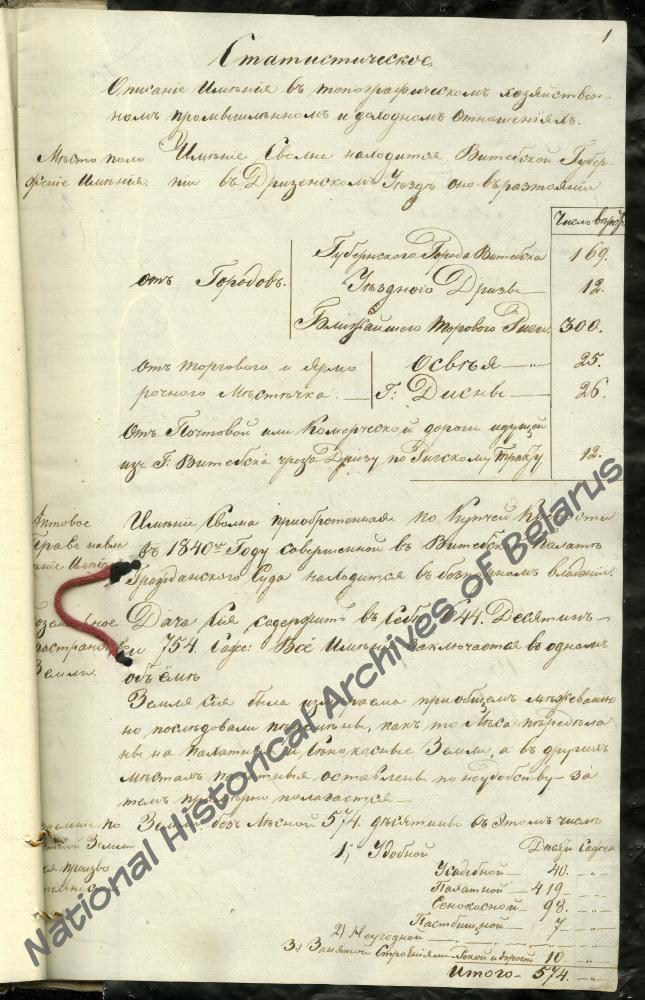 1
Статистическое
Описаніе Имѣнія въ топографическомъ хозяйствен-
номъ промышленномъ и доходномъ отношеніяхъ.
Мѣсто поло
женіе Имѣнія.
Имѣніе Сволна находится Витебской Губер-
ніи въ Дризенскомъ Уездѣ оно въ разтояніи
Число верстъ
отъ Городовъ.
Губернского Города Витебска 169.
Уезднаго Дризы — 12.
Ближайшего торгового Риги. 300.
отъ торгового и ярмо
рочного Мѣстечка. —
Освѣя — „ — 25.
Г: Дисны — 26.
Отъ Почтовой или Комерческой дороги идущей
изъ Г: Витебска чрезъ Дризу по Рижскому тракту 12.
Имѣніе Сволна приобретенная по Купчей Крѣпости
въ 1840мъ Году совершенной в Витебской Палатѣ
Гражданского Суда находится въ владѣніи.
Дача Сія содержитъ въ Себѣ 644. Десятин-
и 754. Саже: Всё Имѣніе заключается в одномъ
объёмѣ
Земли.
Земля Сія была измѣряема при общемъ межеваніи
но послѣдовали перемѣны, какъ то Лѣса передѣла
ны на Палатныя и Сѣнокосные Земли, а въ другихъ
Мѣстахъ палатныя оставлены по неудобству — за
темъ примѣрно полагается —
Земли безъ Лѣсной 574. десятины въ этомъ числѣ
1, Удобной
Десят Сажен
Усадебной — 40. — „ —
Палатной — 419 — „ —
Сенокосной — 98. — „ —
Пастбищной — 7 — „ —
2) Неугодной — „ —
3.) Занятой Строеніями Рекой и дорогой 10 — „ —
Итого — 574. — „ —
National Historical Archives of Belarus